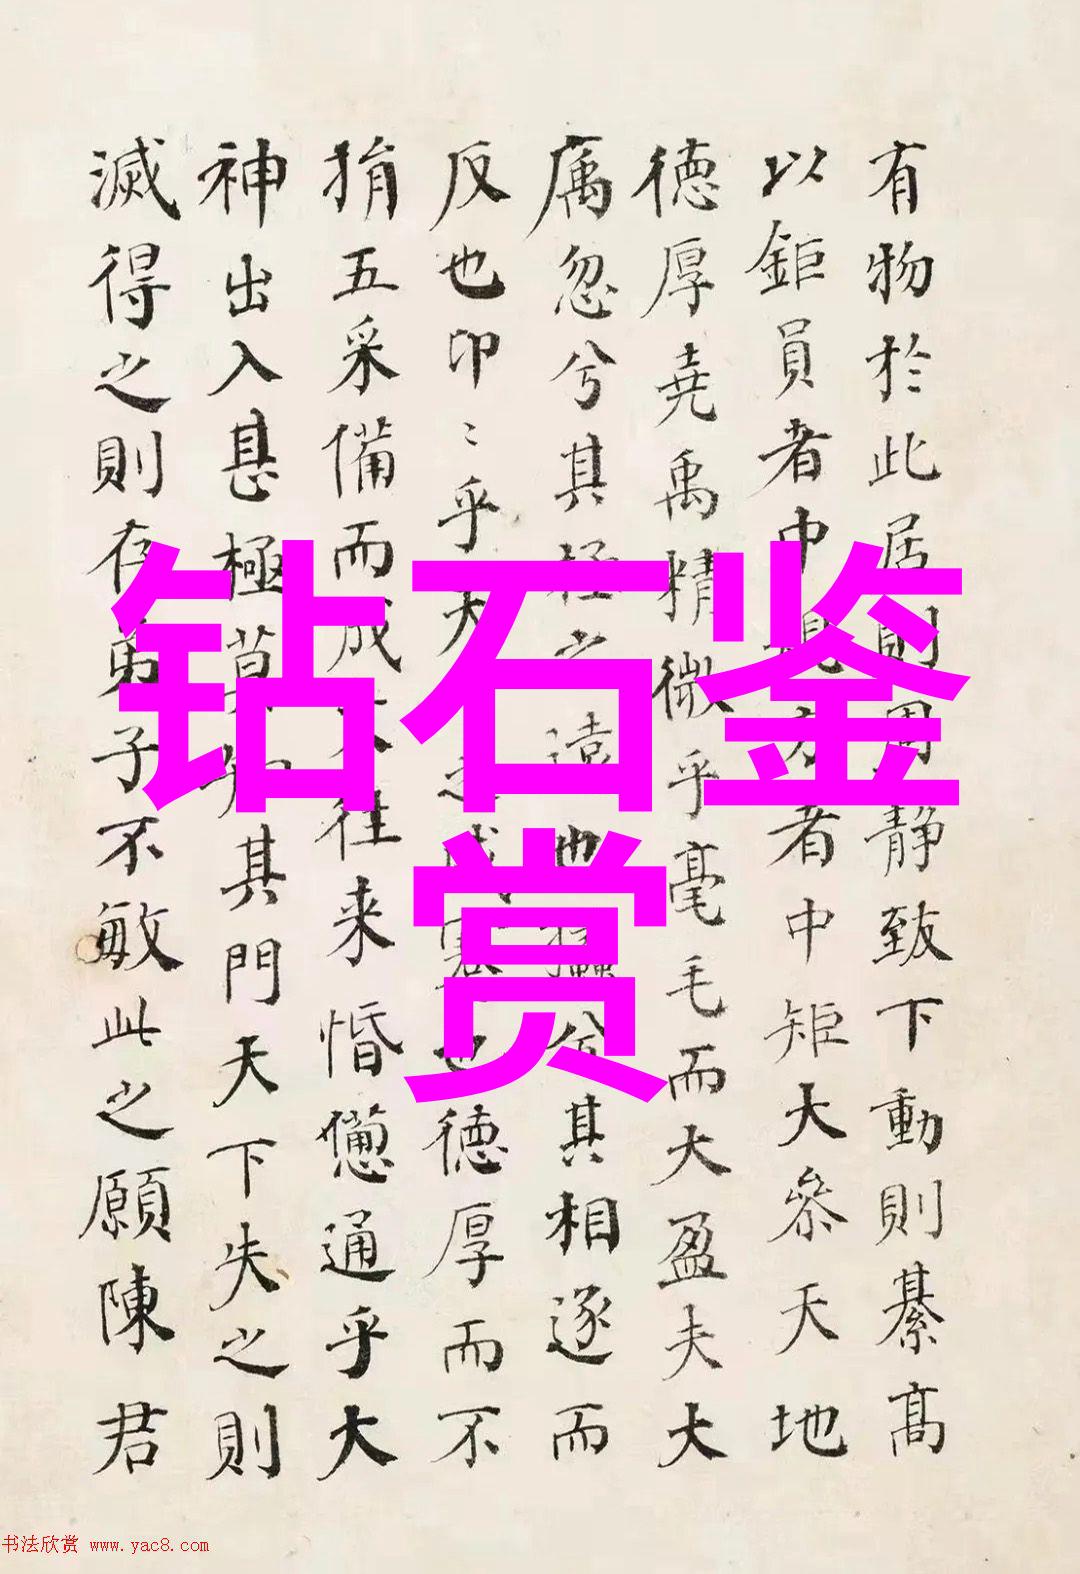 钻石鉴
赏
有物於此居則周静致下動則綦高
以鉅員者中規方者中矩大叅天地
德厚堯禹精微乎毫毛而大盈夫大
厲忽兮其極之遠也攭兮其相逐而
反也卬〻乎天之咸蹇也德厚而不
捐五采備而成文往来惛憊通乎大
神出入甚極莫知其門天下失之則
滅得之則存弟子不敏此之願陳君
书法欣赏 www.yac8.com